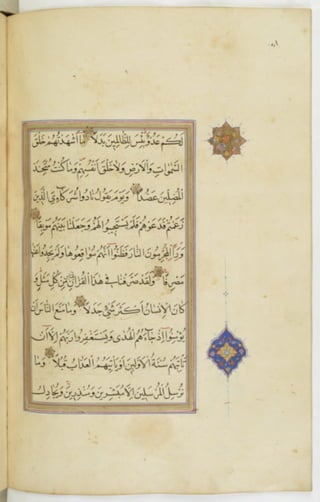 لَكُمْ عَدُوٌّ بِئْسَ لِلظَّالِمِينَ بَدَلًا مَا أَشْهَدْتُهُمْ خَلْقَ
السَّمٰوَاتِ وَالْأَرْضِ وَلَا خَلْقَ أَنْفُسِهِمْ وَمَا كُنْتُ مُتَّخِذَ
الْمُضِلِّينَ عَضُدًا وَيَوْمَ يَقُولُ نَادُوا شُرَكَاءِيَ الَّذِينَ
زَعَمْتُمْ فَدَعَوْهُمْ فَلَمْ يَسْتَجِيبُوا لَهُمْ وَجَعَلْنَا بَيْنَهُمْ مَوْبِقًا
وَرَأَ الْمُجْرِمُونَ النَّارَ فَظَنُّوا أَنَّهُمْ مُوَاقِعُوهَا وَلَمْ يَجِدُوا عَنْهَا
مَصْرِفًا وَلَقَدْ صَرَّفْنَا فِي هٰذَا الْقُرْاٰنِ لِلنَّاسِ مِنْ كُلِّ مَثَلٍ وَ
كَانَ الْإِنْسَانُ أَكْثَرَ شَيْءٍ جَدَلًا وَمَا مَنَعَ النَّاسَ أَنْ
يُؤْمِنُوا إِذْ جَاءَهُمُ الْهُدَى وَيَسْتَغْفِرُوا رَبَّهُمْ إِلَّا أَنْ
تَأْتِيَهُمْ سُنَّةُ الْأَوَّلِينَ أَوْ يَأْتِيَهُمُ الْعَذَابُ قُبُلًا وَمَا
نُرْسِلُ الْمُرْسَلِينَ إِلَّا مُبَشِّرِينَ وَمُنْذِرِينَ وَيُجَادِلُ